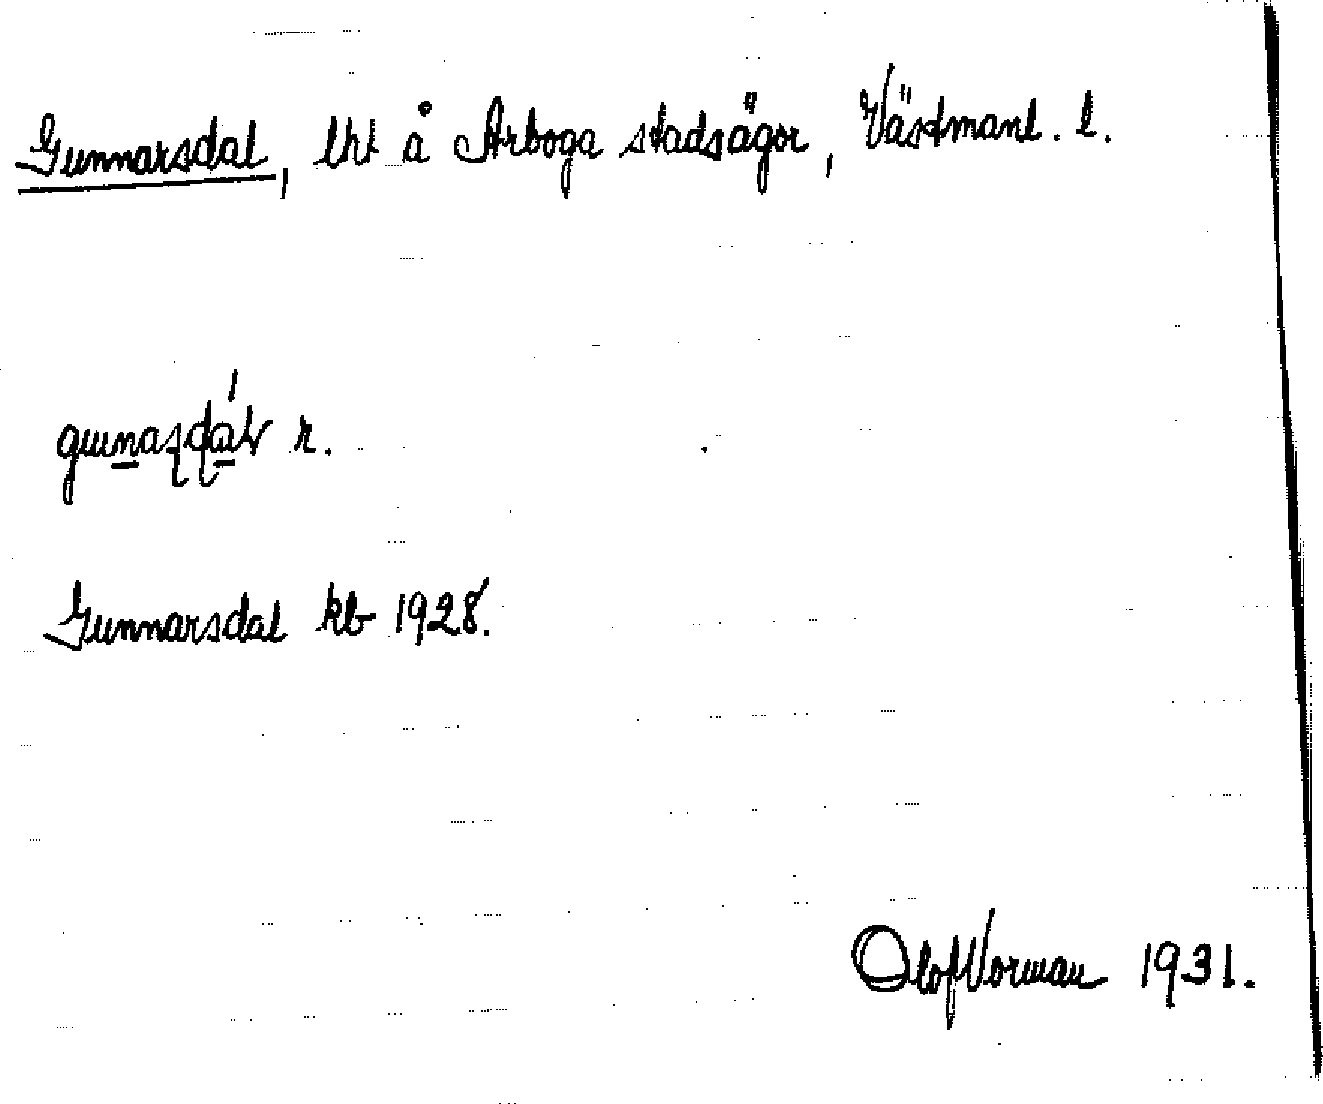 Gunnarsdal, lht å Arboga stadsägor, Västmanl. l.
r.
Gunnarsdal kb 1928.
Olof Vorman 1931.